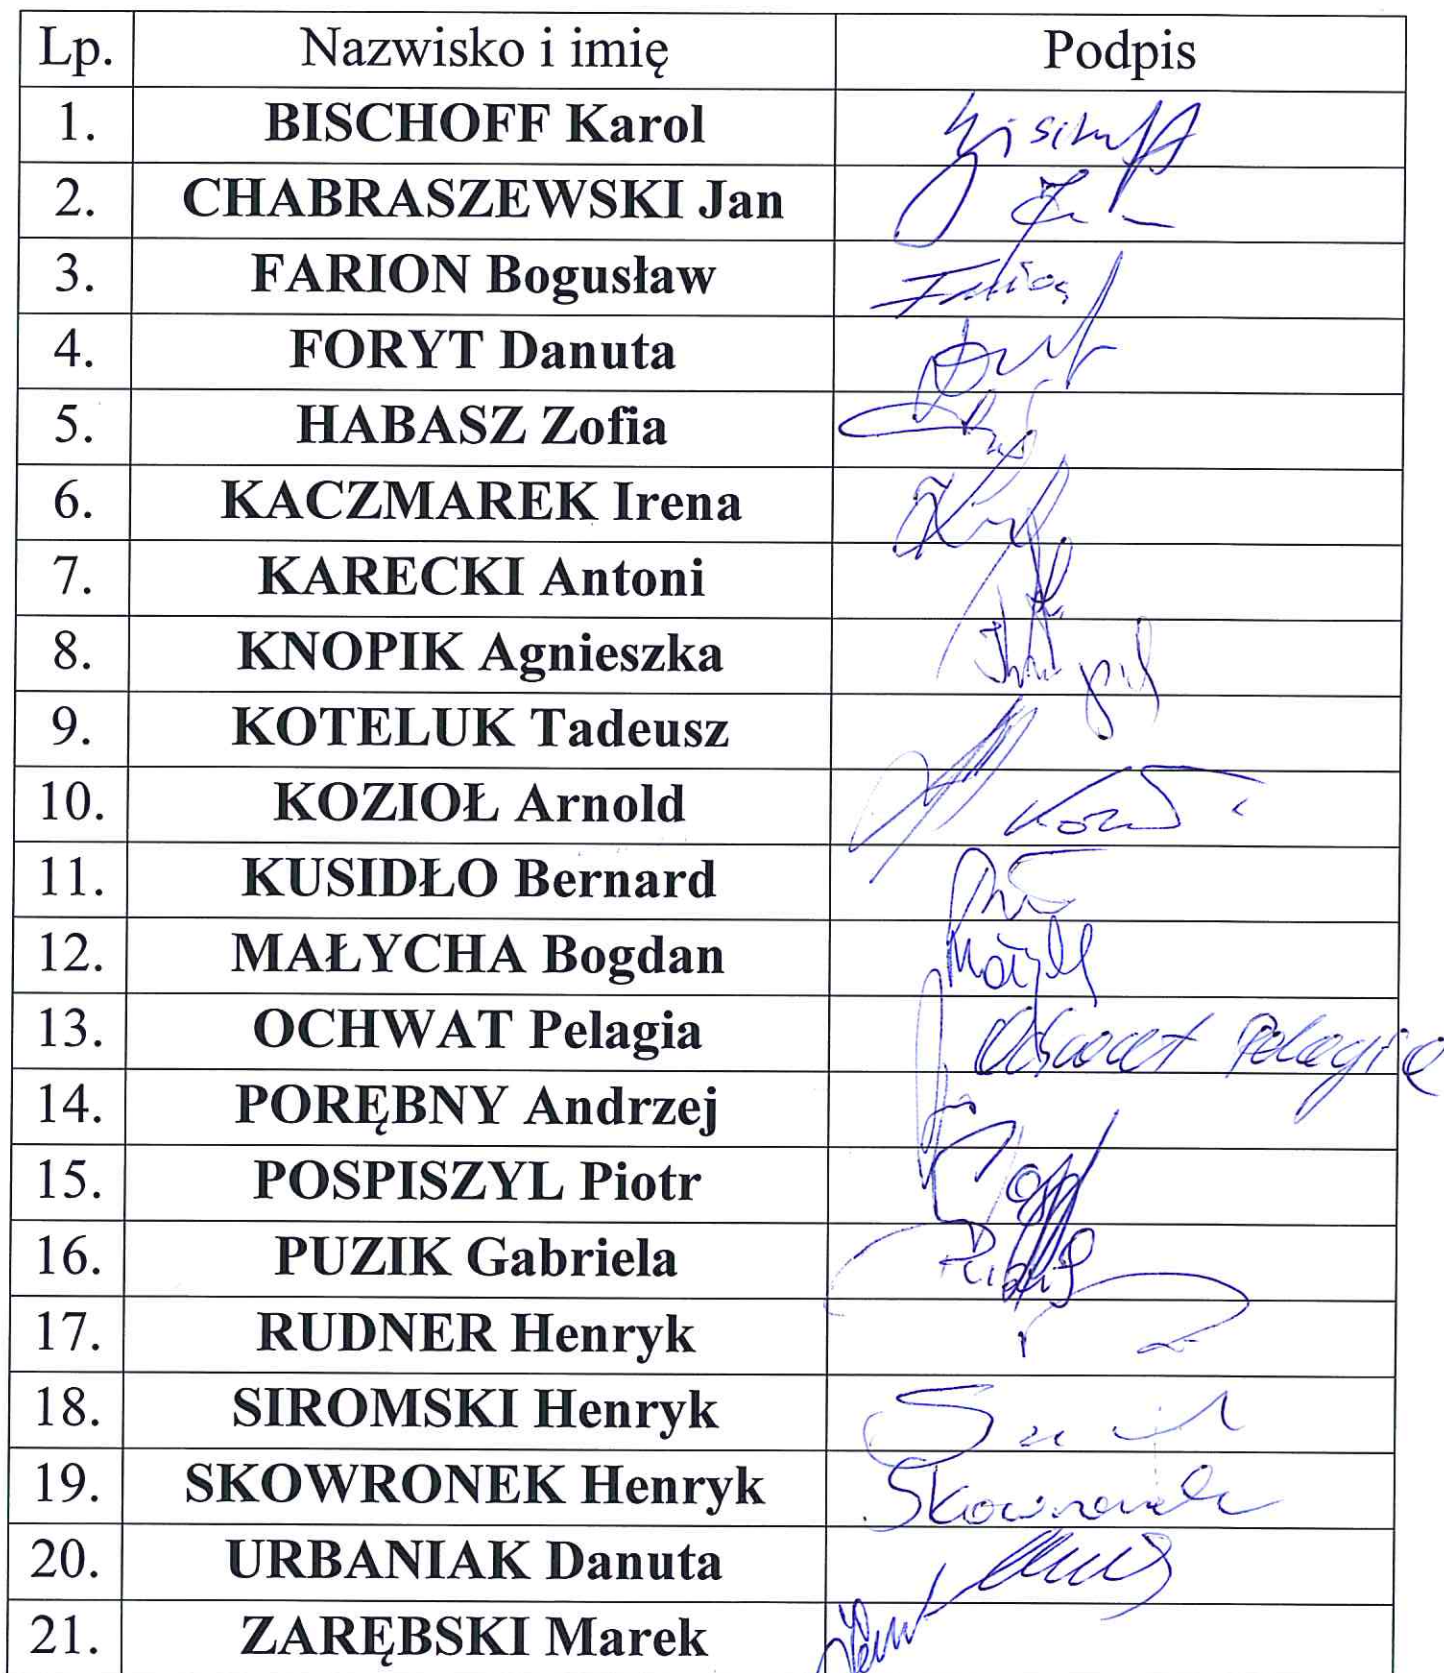 Lp. Nazwisko i imię Podpis
1. BISCHOFF Karol Bischoff
2. CHABRASZEWSKI Jan
3. FARION Bogusław
4. FORYT Danuta
5. HABASZ Zofia
6. KACZMAREK Irena
7. KARECKI Antoni
8. KNOPIK Agnieszka
9. KOTELUK Tadeusz
10. KOZIOŁ Arnold
11. KUSIDŁO Bernard
12. MAŁYCHA Bogdan
13. OCHWAT Pelagia Ochwat Pelagia
14. PORĘBNY Andrzej
15. POSPISZYL Piotr
16. PUZIK Gabriela
17. RUDNER Henryk
18. SIROMSKI Henryk
19. SKOWRONEK Henryk Skowronek
20. URBANIAK Danuta
21. ZARĘBSKI Marek